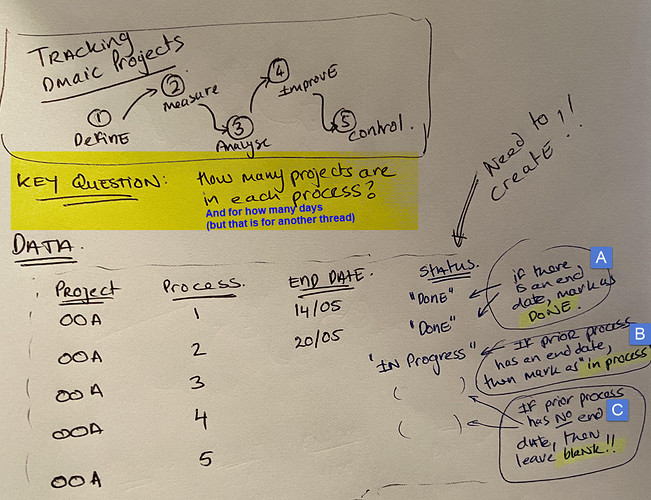 TRACKING
Dmaic Projects
1
DefinE
2
measure
3
Analyse
4
ImprovE
5
control.
KEY QUESTION: How many projects are
in each process?
And for how many days
(but that is for another thread)
Need to
create!!
DATA.
Project Process. END DATE. Status.
00A 1 14/05 "DonE"
00A 2 20/05 "DonE"
00A 3 "IN Progress"
00A 4 ( )
00A 5 ( )
A
if there
is an end
date, mark as
DONE.
B
IF prior process
has an end date,
then mark as "in process"
C
IF prior process
has NO end
date, then
leave blank!!